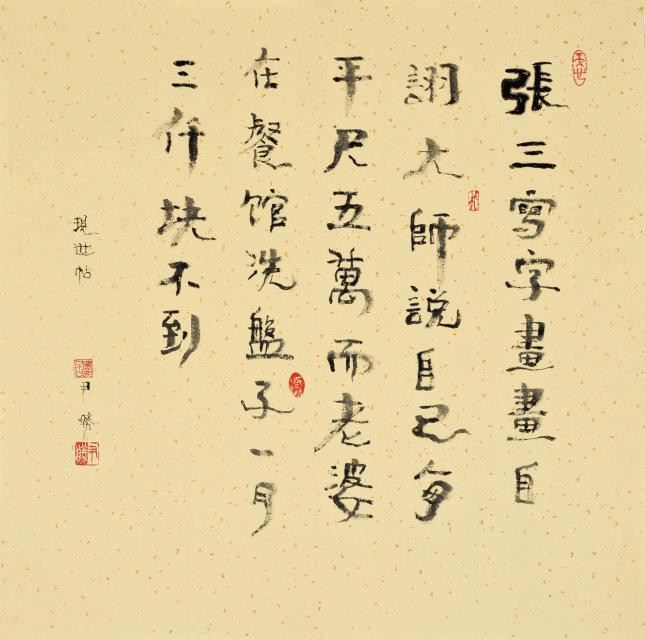 張三寫字畫畫自
詡大師說自己每
平尺五萬而老婆
在餐馆洗盤子一月
三仟块不到
現世帖
尹勝